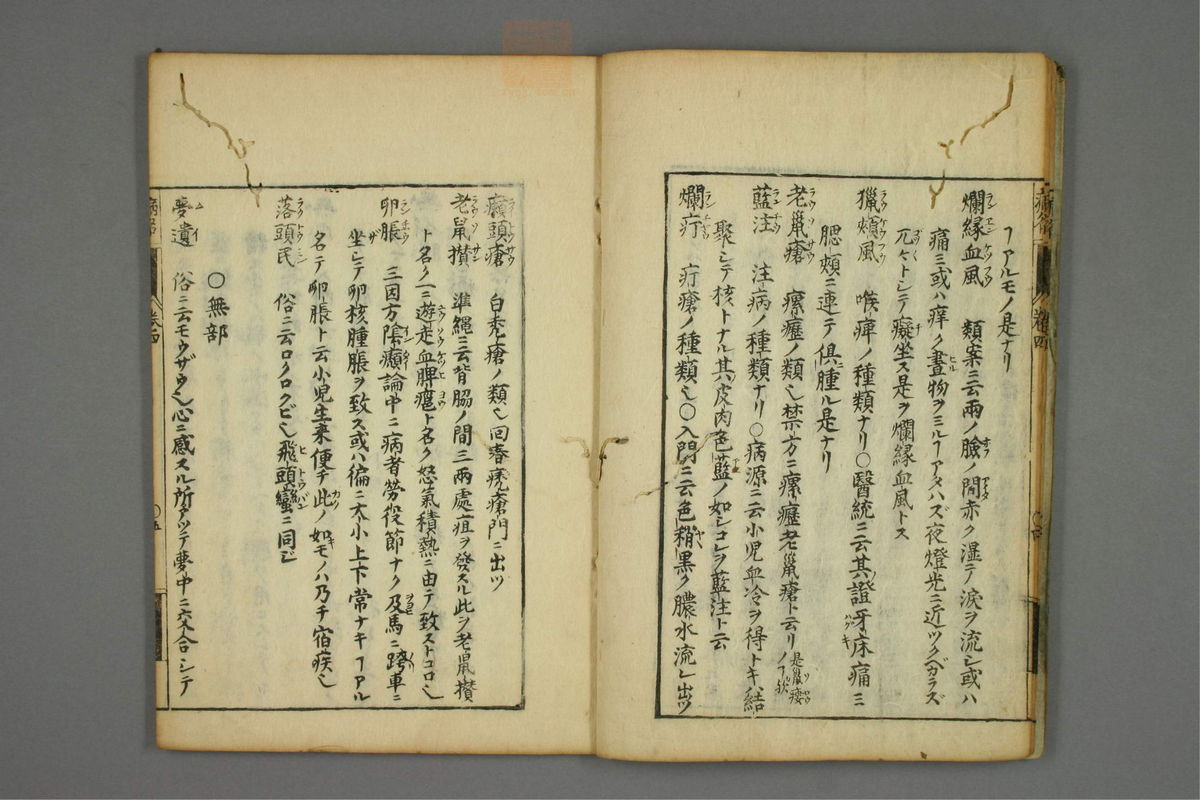 ヿアルモノ是ナリ
爛緣血風 類案ニ云兩ノ臉ノ間赤ク濕テ淚ヲ流シ或ハ
痛ミ或ハ痒ク晝物ヲミルヿアタハズ夜燈光ニ近ツクベカラズ
兀々トシテ癡坐ス是ヲ爛緣血風トス
獵頰風 喉痺ノ種類ナリ〇醫統ニ云其證牙床痛ミ
腮頰ニ連テ俱ニ腫ル是ナリ
老鼠瘡 瘰癧ノ類也禁方ニ瘰癧老鼠瘡ト云リ是鼠瘻ノヿ欤
藍注 注病ノ種類ナリ〇病源ニ云小兒血冷ヲ得トキハ結
聚シテ核トナル其皮肉色藍ノ如シコレヲ藍注ト云
爛疔 疔瘡ノ種類也〇入門ニ云色稍黑ク膿水流レ出ツ
癩頭瘡 白禿瘡ノ類也回春禿瘡門ニ出ツ
老鼠攅 準繩ニ云背脇ノ間ニ兩處疽ヲ發スル此ヲ老鼠攅
ト名ク一ニ遊走血脾癰ト名ク怒氣積熱ニ由テ致ストコロ也
卵脹 三因方陰癩論中ニ病者勞役節ナク及馬ニ跨車ニ
坐シテ卵核腫脹ヲ致ス或ハ偏ニ大小上下常ナキヿアル
名テ卵脹ト云小兒生來便チ此ノ如キモノハ乃チ宿疾也
落頭民 俗ニ云ロクロクビ也飛頭蠻ニ同シ
〇無部
夢遺 俗ニ云モウザウ也心ニ感スル所アツテ夢中ニ交合シテ
卷四